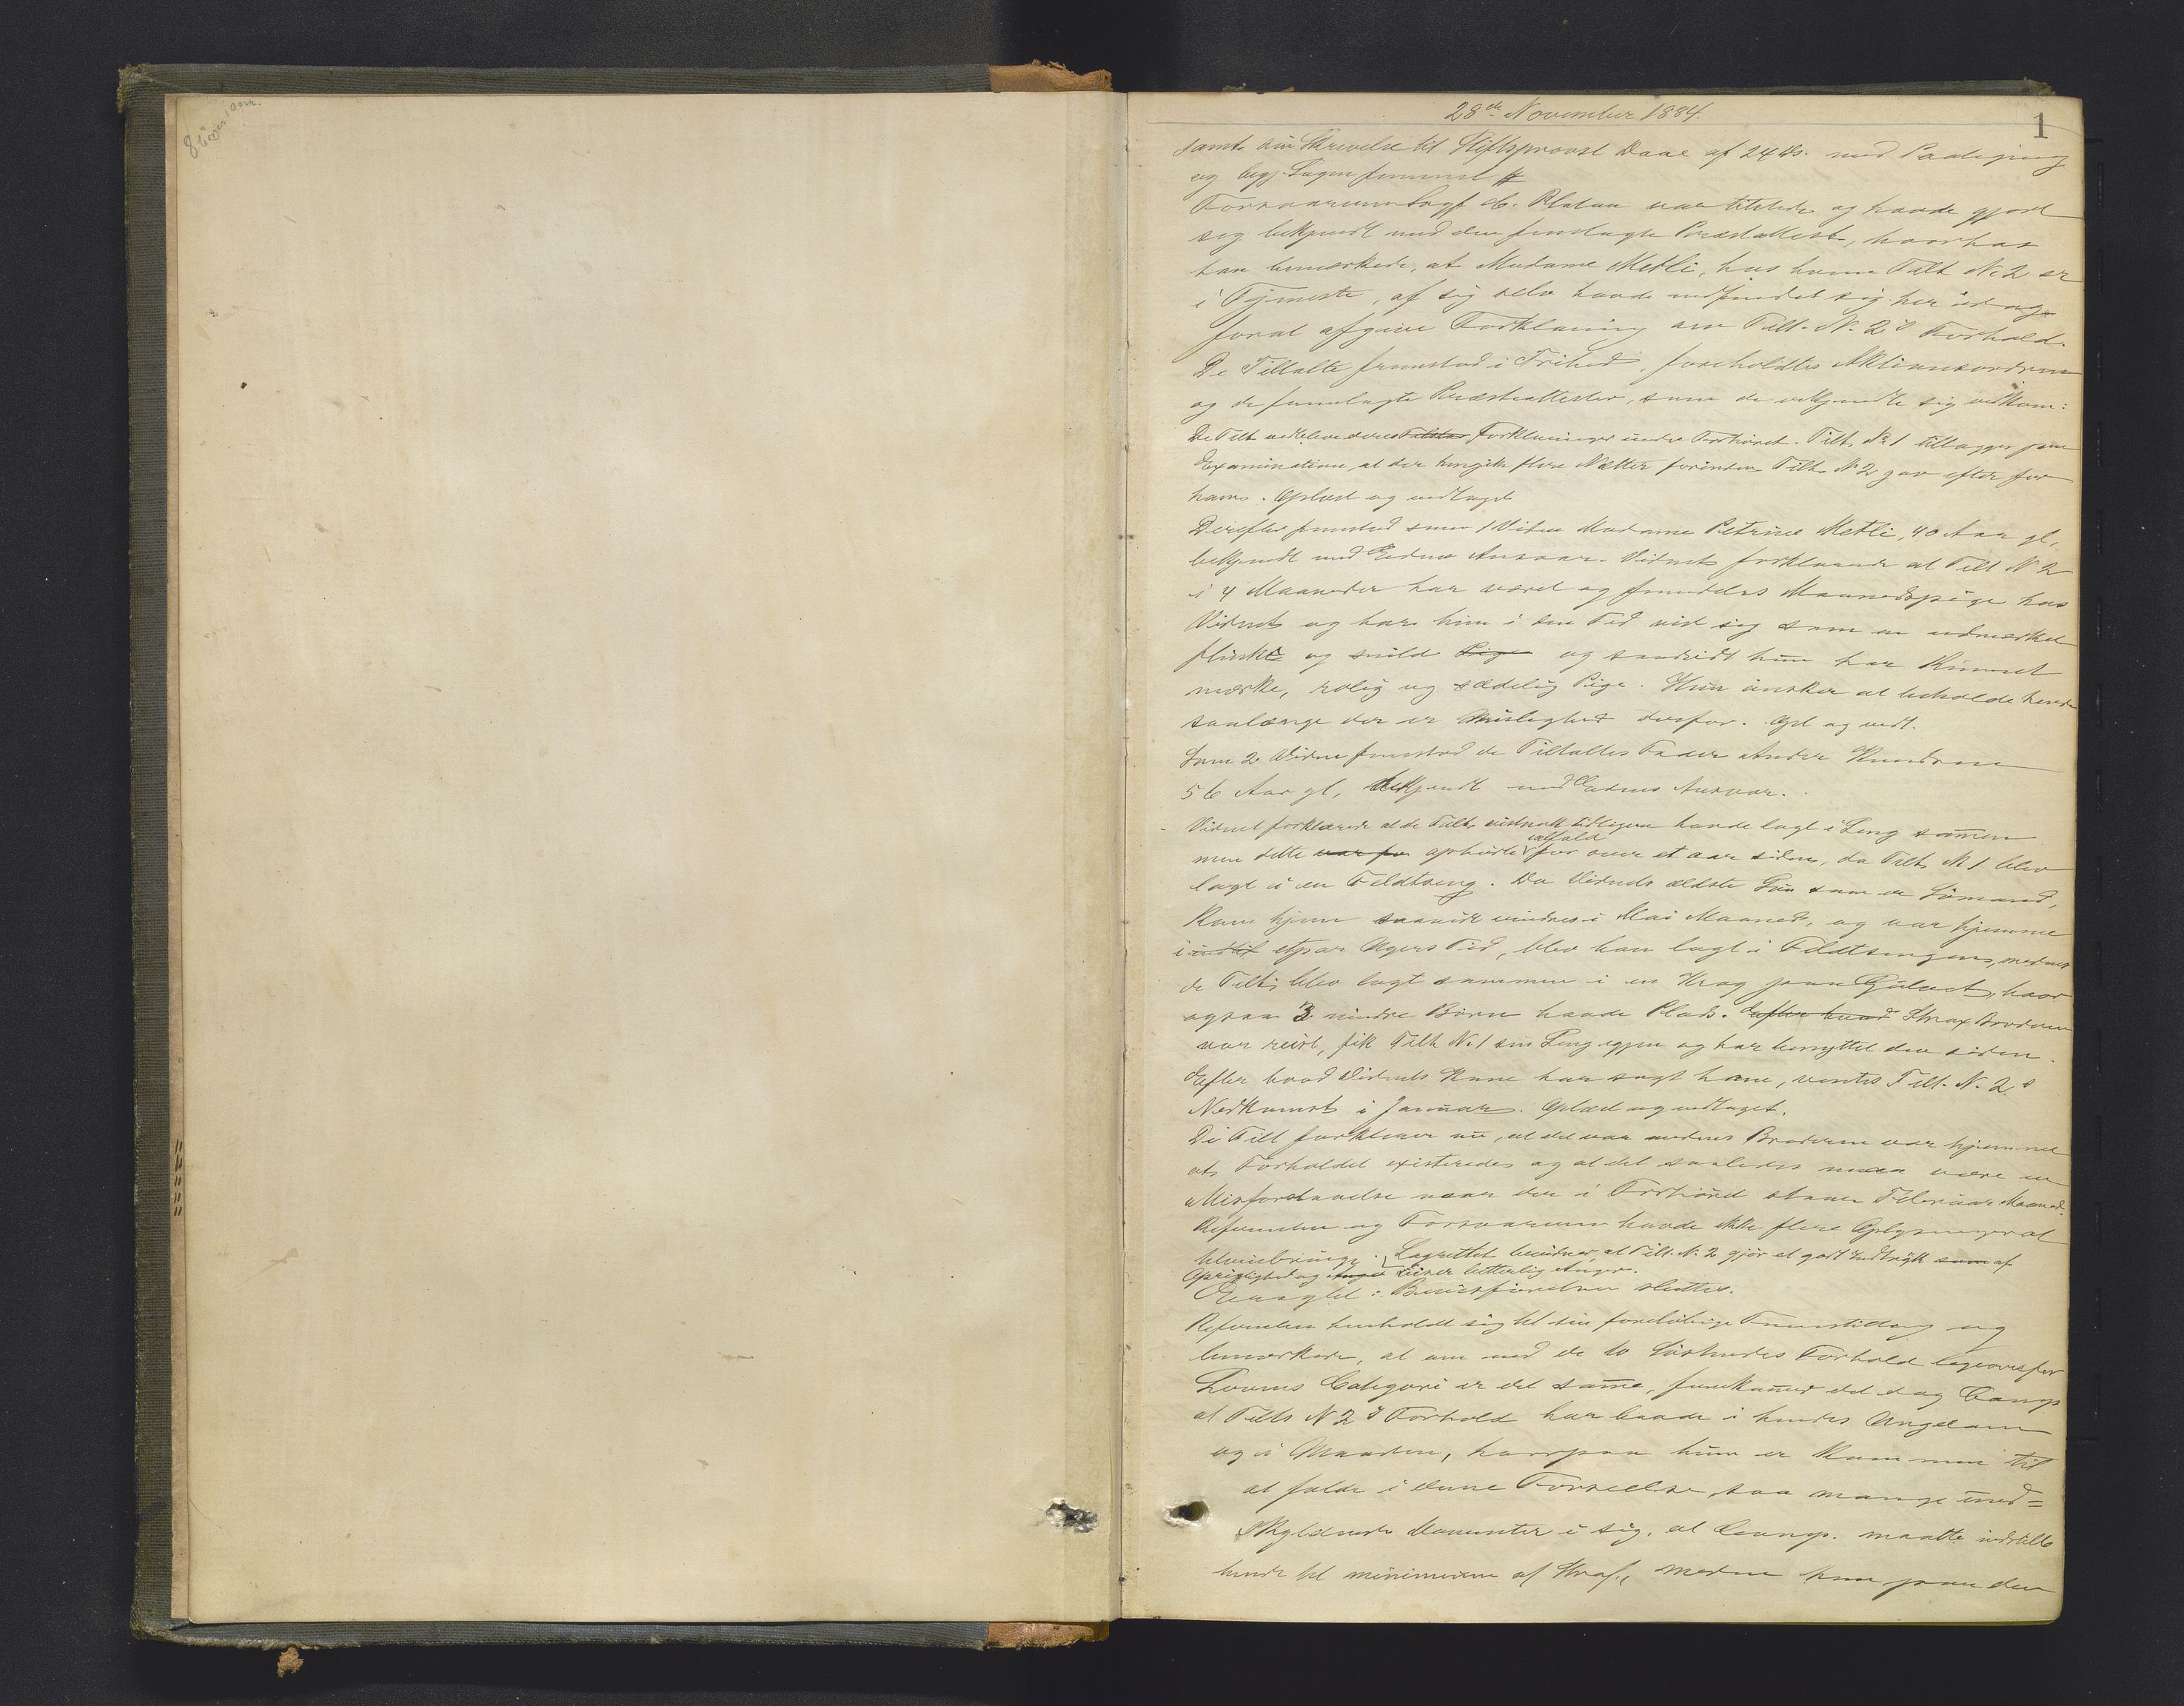 28de November 1884.
1
samt sin Skrivelse til Stiftsprovst Daae af 24 ds. med Paategning
og begj. Sagen fremmet
Forsvareren Sagf. Platou var tilstede og havde gjort
sig bekjendt med den fremlagte Præsteattest, hvorhos
han bemærkede, at Madame Metli, hos hvem Tilt No 2 er
i Tjeneste, af sig selv havde indfundet sig her idag
forat afgive Forklaring om Tilt. N. 2s Forhold.
De Tiltalte fremstod i Frihed, foreholdtes Aktionsordren
og de fremlagte Præsteattester, som de vedkjendte sig vedkom:
De Tilt vedblev deres Forklaringer under Forhøret. Tilt. No 1 tillægger paa
Examination, at der hengik flere Nætter forinden Tilt. N 2 gav efter for
ham. Oplæst og vedtaget
Derefter fremstod som 1 Vidne Madame Petrine Metli, 40 Aar gl,
bekjendt med Edens Ansvar. Vidnet forklarede at Tilt N 2
i 4 Maaneder har været og fremdeles Maanedspige hos
Vidnet og har hun i den Tid vist sig som en udmærket
flink og snild Pige og saavidt hun har kunnet
mærke, rolig og sædelig Pige. Hun ønsker at beholde hende
saalænge der er Mulighed derfor. Opl og vedt.
Som 2 Vidne fremstod de Tiltaltes Fader Anders Knudsen
56 Aar gl, bekjendt med Edens Ansvar.
Vidnet forklarede at de Talte vistnok tidligere havde lagt i Seng sammen
men dette var for ophørte ialfald for over et aar siden, da Tilt. N 1 blev
lagt i en Feldtseng. Da Vidnets ældste Søn som er Sømand,
kom hjem saavidt mindes i Mai Maaned, og var hjemme
i etpar Ugers Tid, blev han lagt i Feldtsengen, medens
de Tilt. blev lagt sammen i en Krog paa Gulvet, hvor
ogsaa 3 mindre Børn havde Plads. Efter hvad Strax Broderen
var reist, fik Tilt No 1 sin Seng igjen og har benyttet den siden.
Efter hvad Vidnets Kone har sagt ham, ventes Tilt. N. 2s
Nedkomst i Januar. Oplæst og vedtaget.
De Tilt forklarer nu, at det var medens Broderen var hjemme
at Forholdet existerede og at det saaledes maa være en
Misforstaaelse naar der i Forhøret staar Februar Maaned.
Referenten og Forsvareren havde ikke flere Oplysninger at
tilveiebringe. Lagrettet bevidner, at Tilt. N. 2 gjør et godt Indtryk som af
Oprigtighed og Anger
Eragtet: Bevisførelsen sluttes.
Referenten henholdt sig til sin foreløbige Fremstilling og
bemærkede, at om end de to Søskendes Forhold ligeoverfor
Lovens Categori er det samme, forekommer det dog Comp
at Tilts N 2s Forhold har baade i hendes Ungdom
og i Maaden, hvorpaa hun er kommen til
at falde i denne Forseelse, saa mange und=
skyldende Momenter i sig, at Comp. maatte indstille
hende til minimum af Straf, medens han paa den